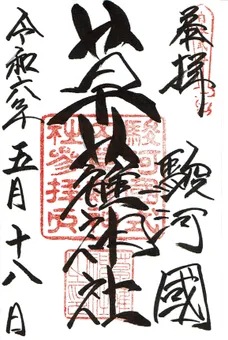 奉拝
駿河國
草薙神社
令和六年五月十八日